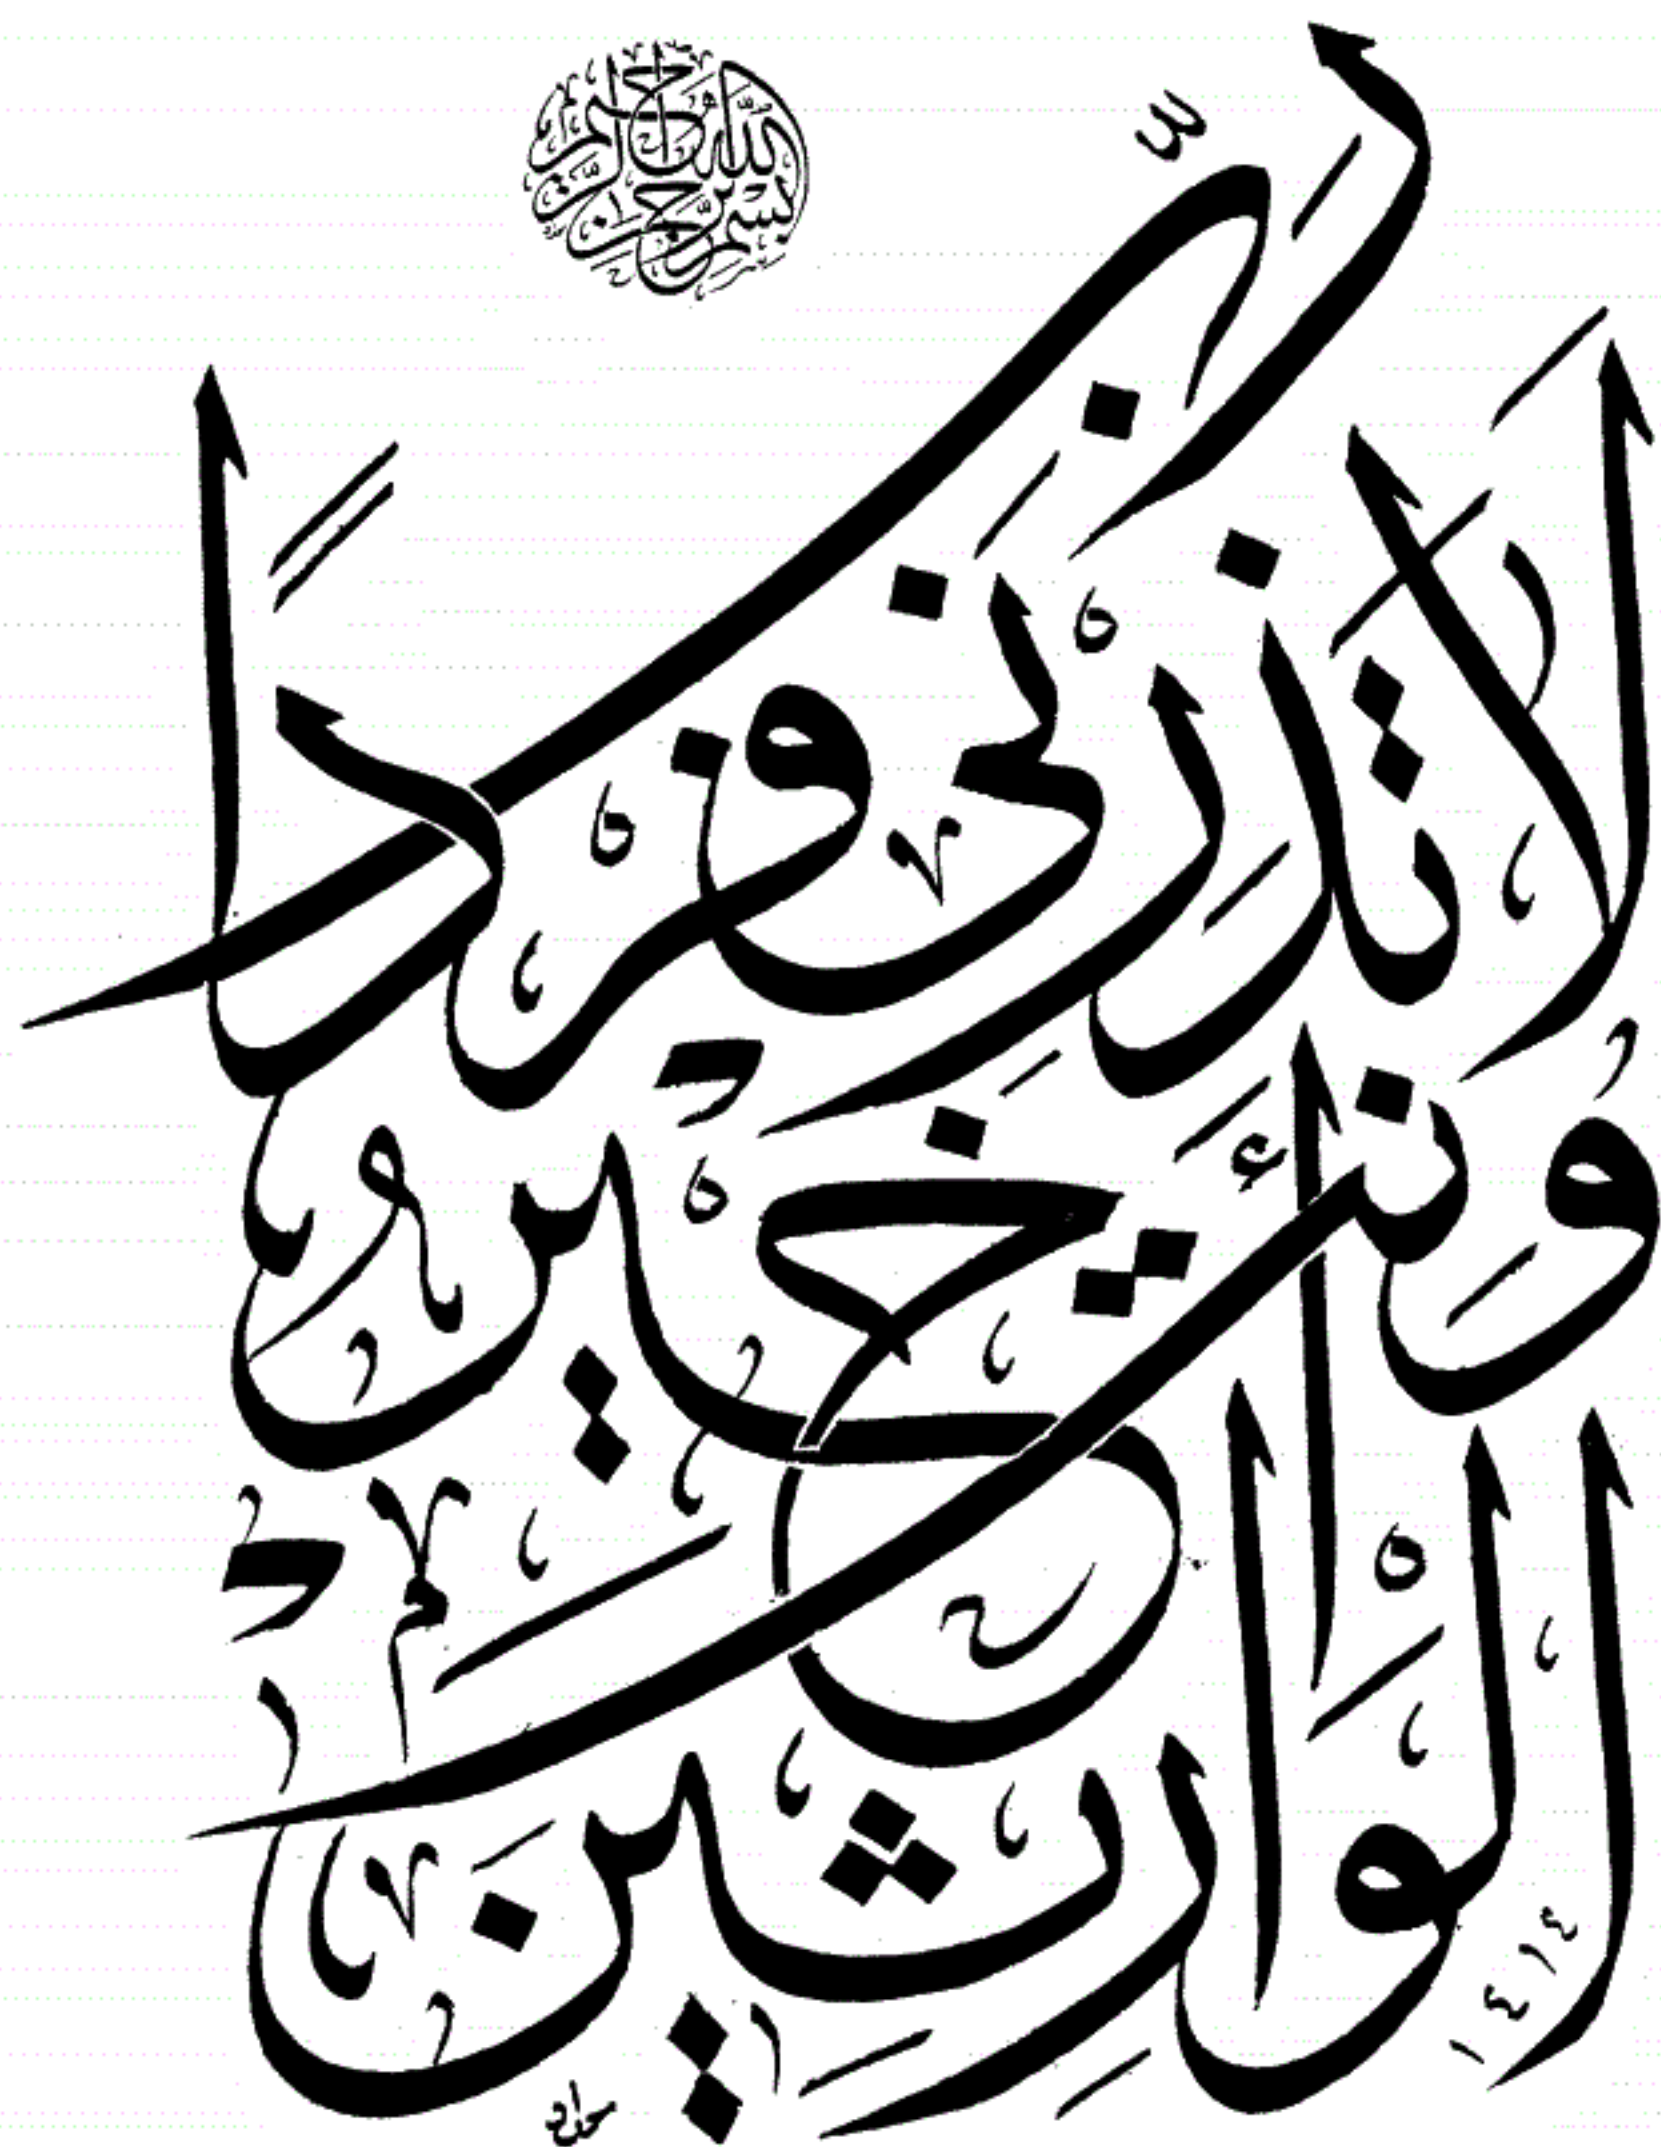 بسم الله الرحمن الرحيم
رَبِّ
لَا تَذَرْنِي فَرْدًا
وَأَنتَ خَيْرُ
الْوَارِثِينَ
١٤١٤